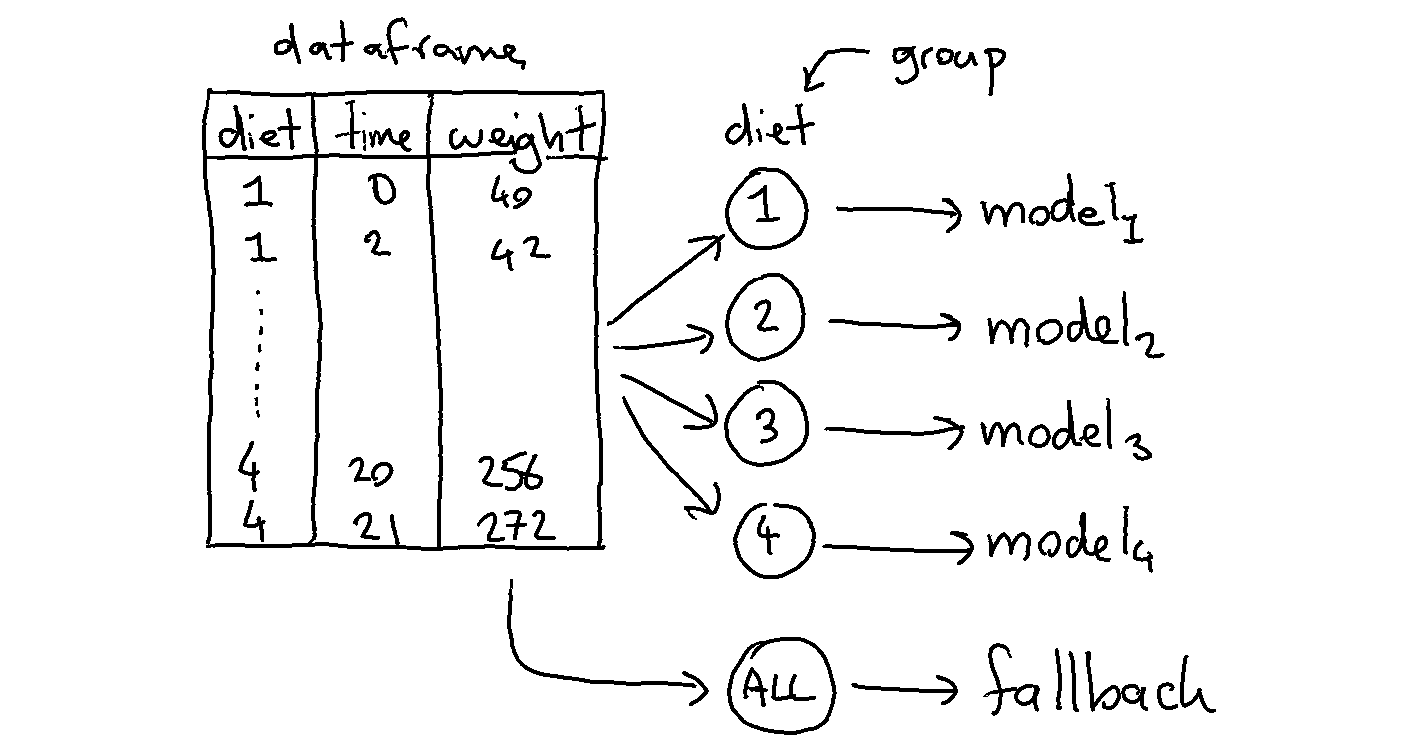 dataframe
diet time weight
1 0 40
1 2 42
4 20 256
4 21 272
group
diet
1 model1
2 model2
3 model3
4 model4
ALL fallback